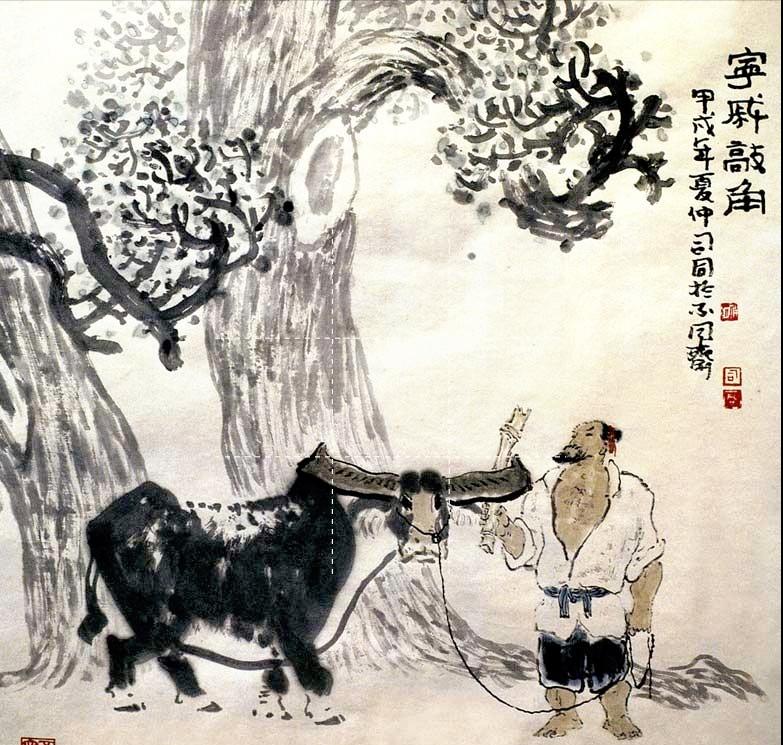 寧戚敲角
甲戌年夏仲司同於不同齋